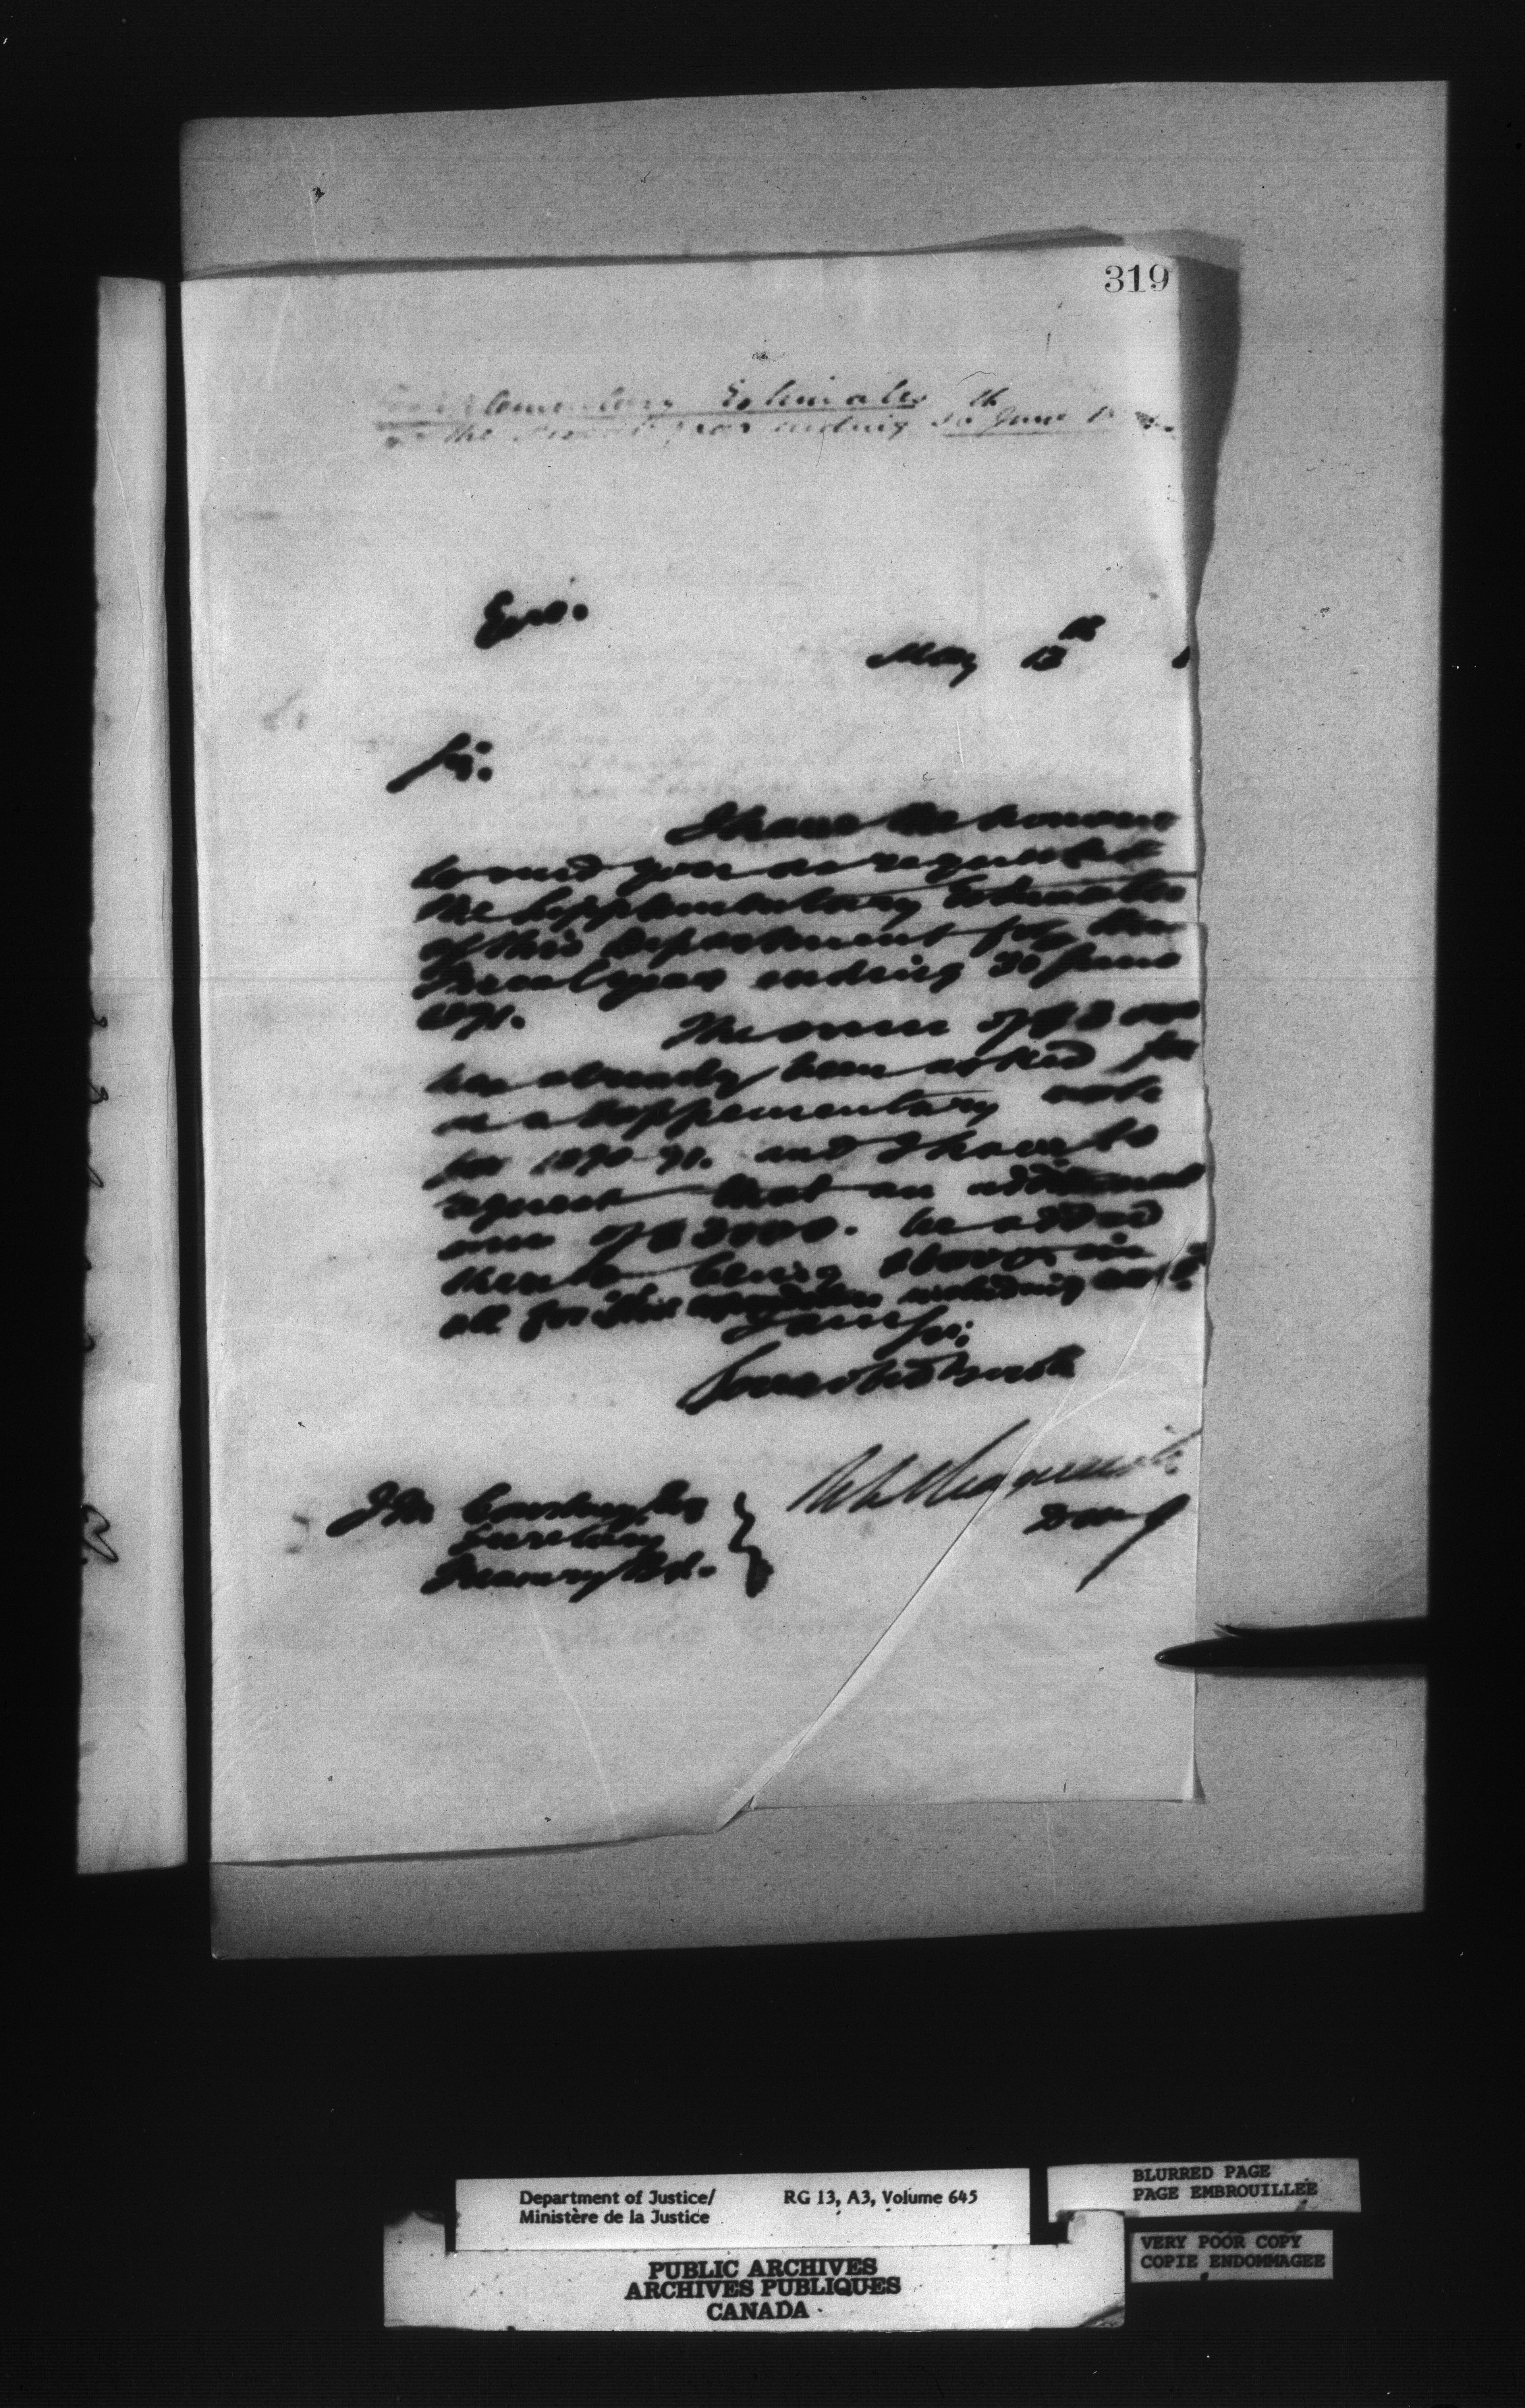 319
Supplementary Estimates
the Fiscal year ending 30th June
May 13th
Sir.
I have the honour
to send you as requested
the Supplementary Estimates
of this Department for the
Fiscal year ending 30 June
1871.
The sum of $3000
has already been asked for
as a Supplementary vote
for 1870-71. and I have to
request that an additional
sum of $3000. be added
thereto being $6000. in
all for this expenditure including
I am Sir.
Your obed Servt
Secretary
Treasury Bd.
Department of Justice/
Ministère de la Justice
RG 13, A3, Volume 645
BLURRED PAGE
PAGE EMBROUILLEE
VERY POOR COPY
COPIE ENDOMMAGEE
PUBLIC ARCHIVES
ARCHIVES PUBLIQUES
CANADA